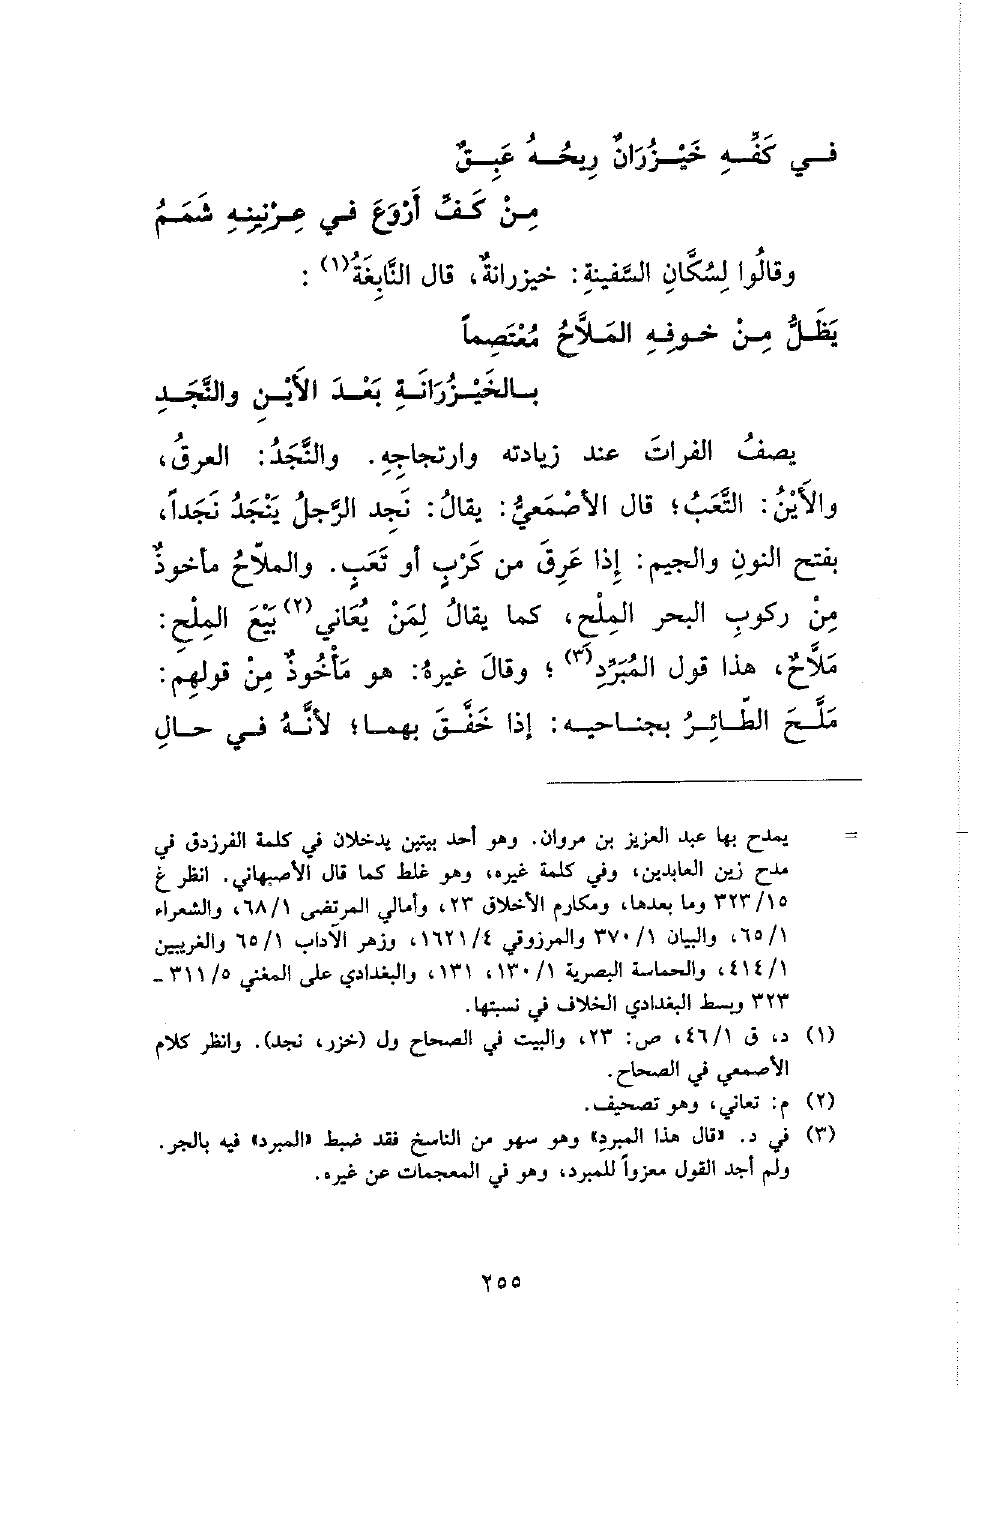 في كَفِّهِ خَيْزُرَانٌ رِيحُهُ عَبِقٌ
مِنْ كَفِّ أَرْوَعَ في عِرْنِينِهِ شَمَمُ
وقالُوا لِسُكَّانِ السَّفينةِ: خيزرانةٌ، قال النَّابِغَةُ(١) :
يَظَلُّ مِنْ خوفِهِ المَلاَّحُ مُعْتَصِماً
بالخَيْزُرَانَةِ بَعْدَ الأَيْنِ والنَّجَدِ
يصفُ الفراتَ عند زيادته وارتجاجِهِ. والنَّجَدُ: العرقُ،
والأَيْنُ: التَّعَبُ؛ قال الأصْمَعيُّ: يقالُ: نَجِد الرَّجلُ يَنْجَدُ نَجَداً،
بفتح النونِ والجيم: إِذا عَرِقَ من كَرْبٍ أو تَعَبٍ. والملاّحُ مأخوذٌ
مِنْ ركوبِ البحر المِلْح، كما يقالُ لِمَنْ يُعَاني(٢) بَيْعَ المِلْحِ:
مَلاَّحٌ، هذا قول المُبَرِّدِ(٣) ؛ وقالَ غيرهُ: هو مَأْخُوذٌ مِنْ قولهِم:
مَلَّحَ الطَّائِرُ بجناحيه: إذا خَفَّقَ بهما؛ لأنَّهُ في حالِ
= يمدح بها عبد العزيز بن مروان. وهو أحد بيتين يدخلان في كلمة الفرزدق في
مدح زين العابدين، وفي كلمة غيره، وهو غلط كما قال الأصبهاني. انظر غ
١٥/ ٣٢٣ وما بعدها، ومكارم الأخلاق ٢٣، وأمالي المرتضى ١/ ٦٨، والشعراء
١/ ٦٥، والبيان ١/ ٣٧٠ والمرزوقي ٤/ ١٦٢١، وزهر الآداب ١/ ٦٥ والغريبين
١/ ٤١٤، والحماسة البصرية ١/ ١٣٠، ١٣١، والبغدادي على المغني ٥/ ٣١١ -
٣٢٣ وبسط البغدادي الخلاف في نسبتها.
(١) د، ق ١/ ٤٦، ص: ٢٣، والبيت في الصحاح ول (خزر، نجد). وانظر كلام
الأصمعي في الصحاح.
(٢) م: تعاني، وهو تصحيف.
(٣) في د. «قال هذا المبردِ» وهو سهو من الناسخ فقد ضبط «المبرد» فيه بالجر.
ولم أجد القول معزواً للمبرد، وهو في المعجمات عن غيره.
٢٥٥